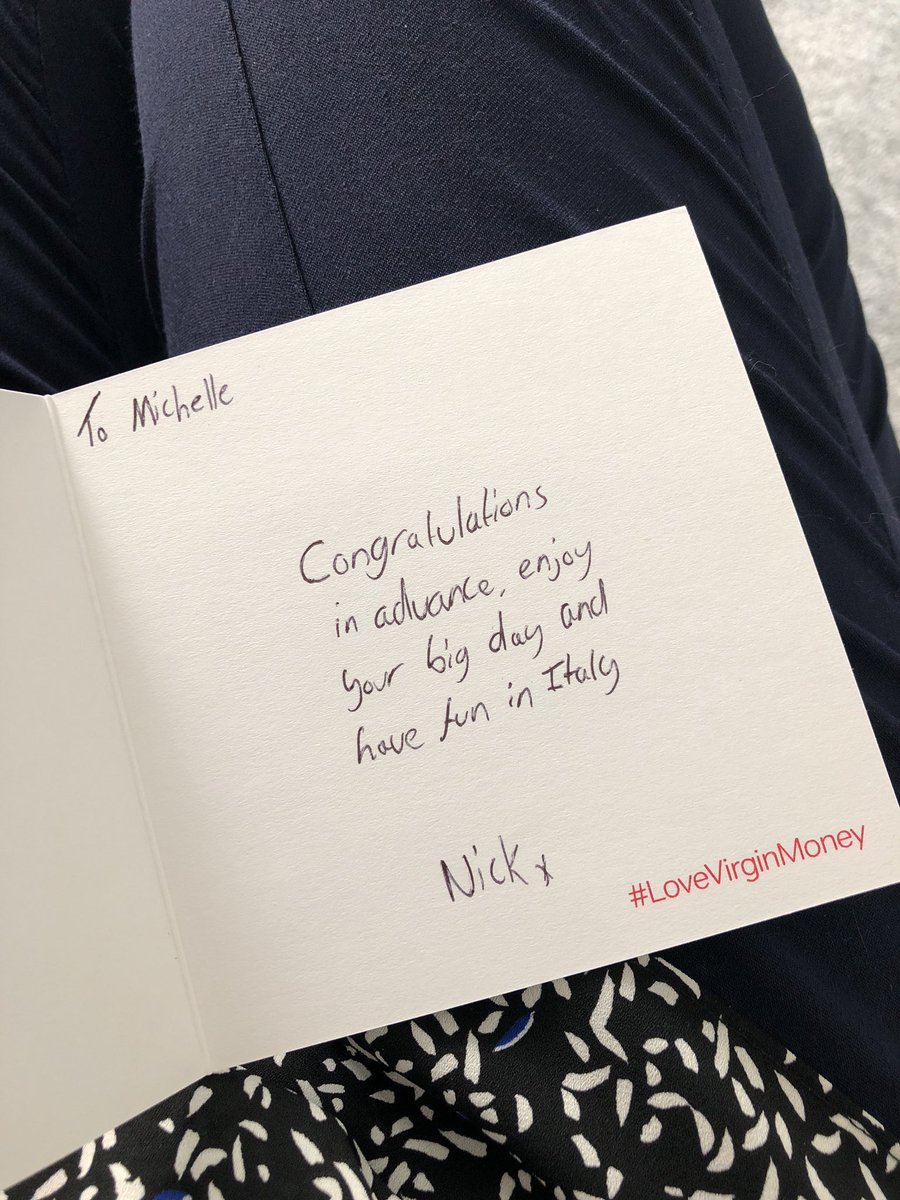 To Michelle
Congratulations
in advance, enjoy
your big day and
have fun in Italy
Nick x
#LoveVirginMoney